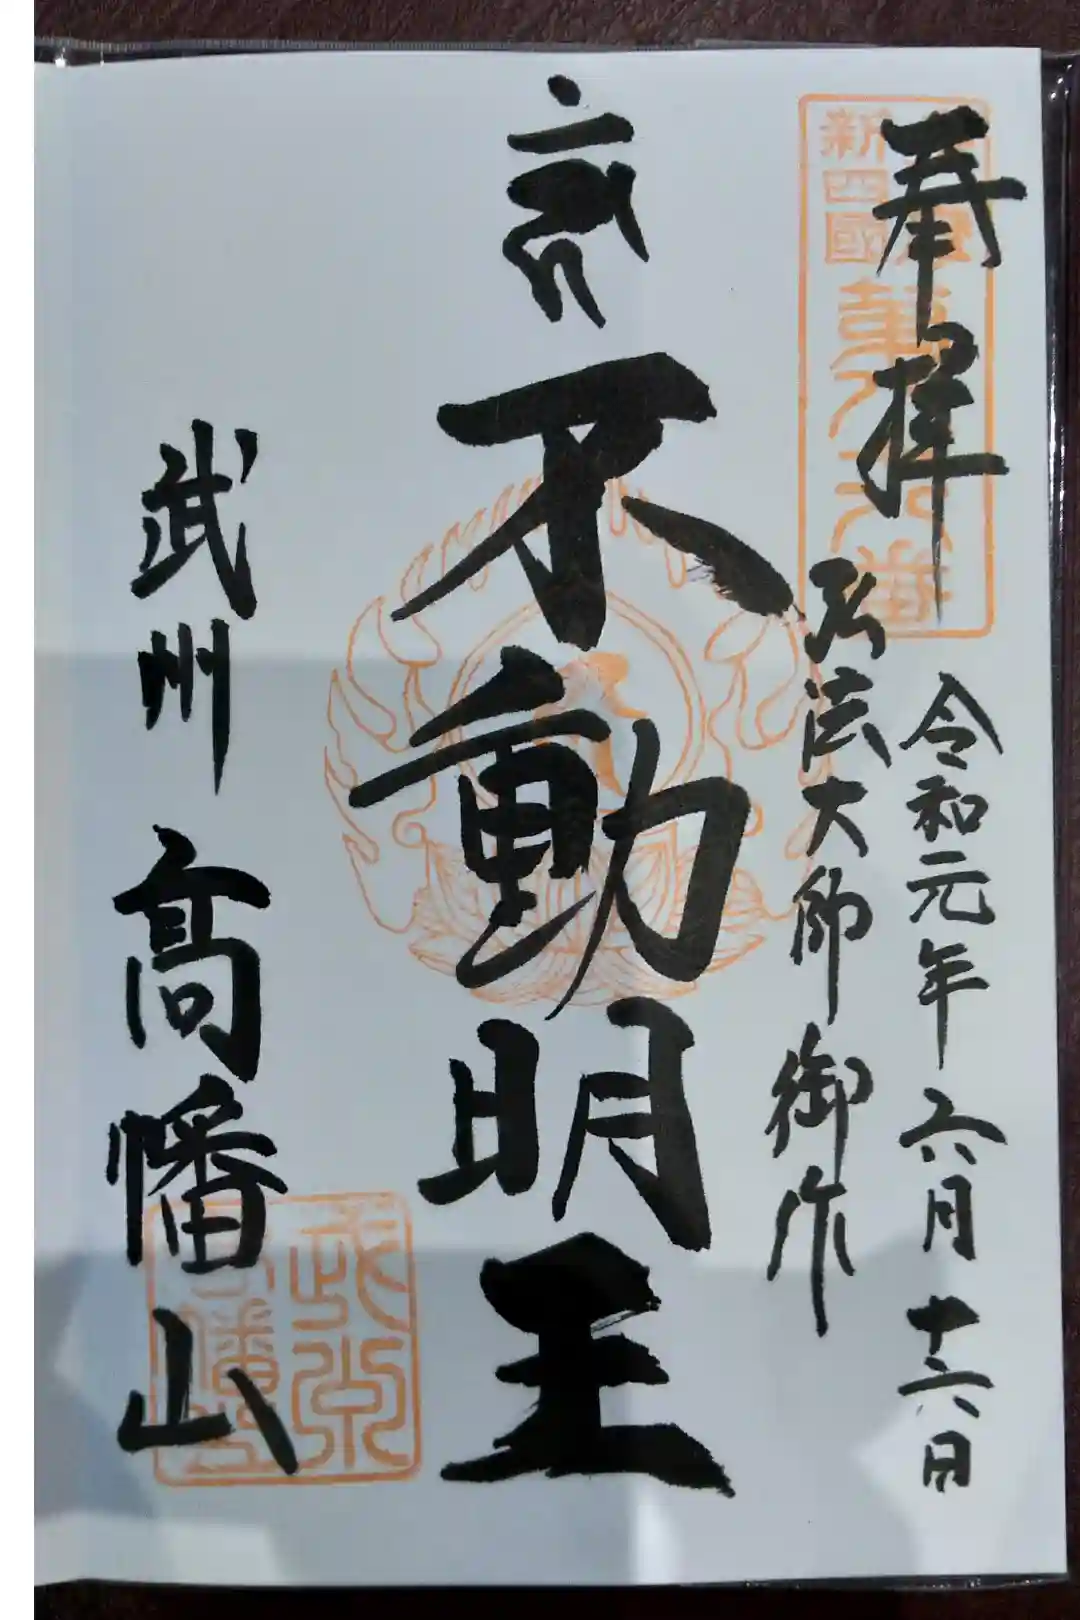 奉拝
令和元年六月十六日
弘法大師御作
不動明王
武州 高幡山
新四國